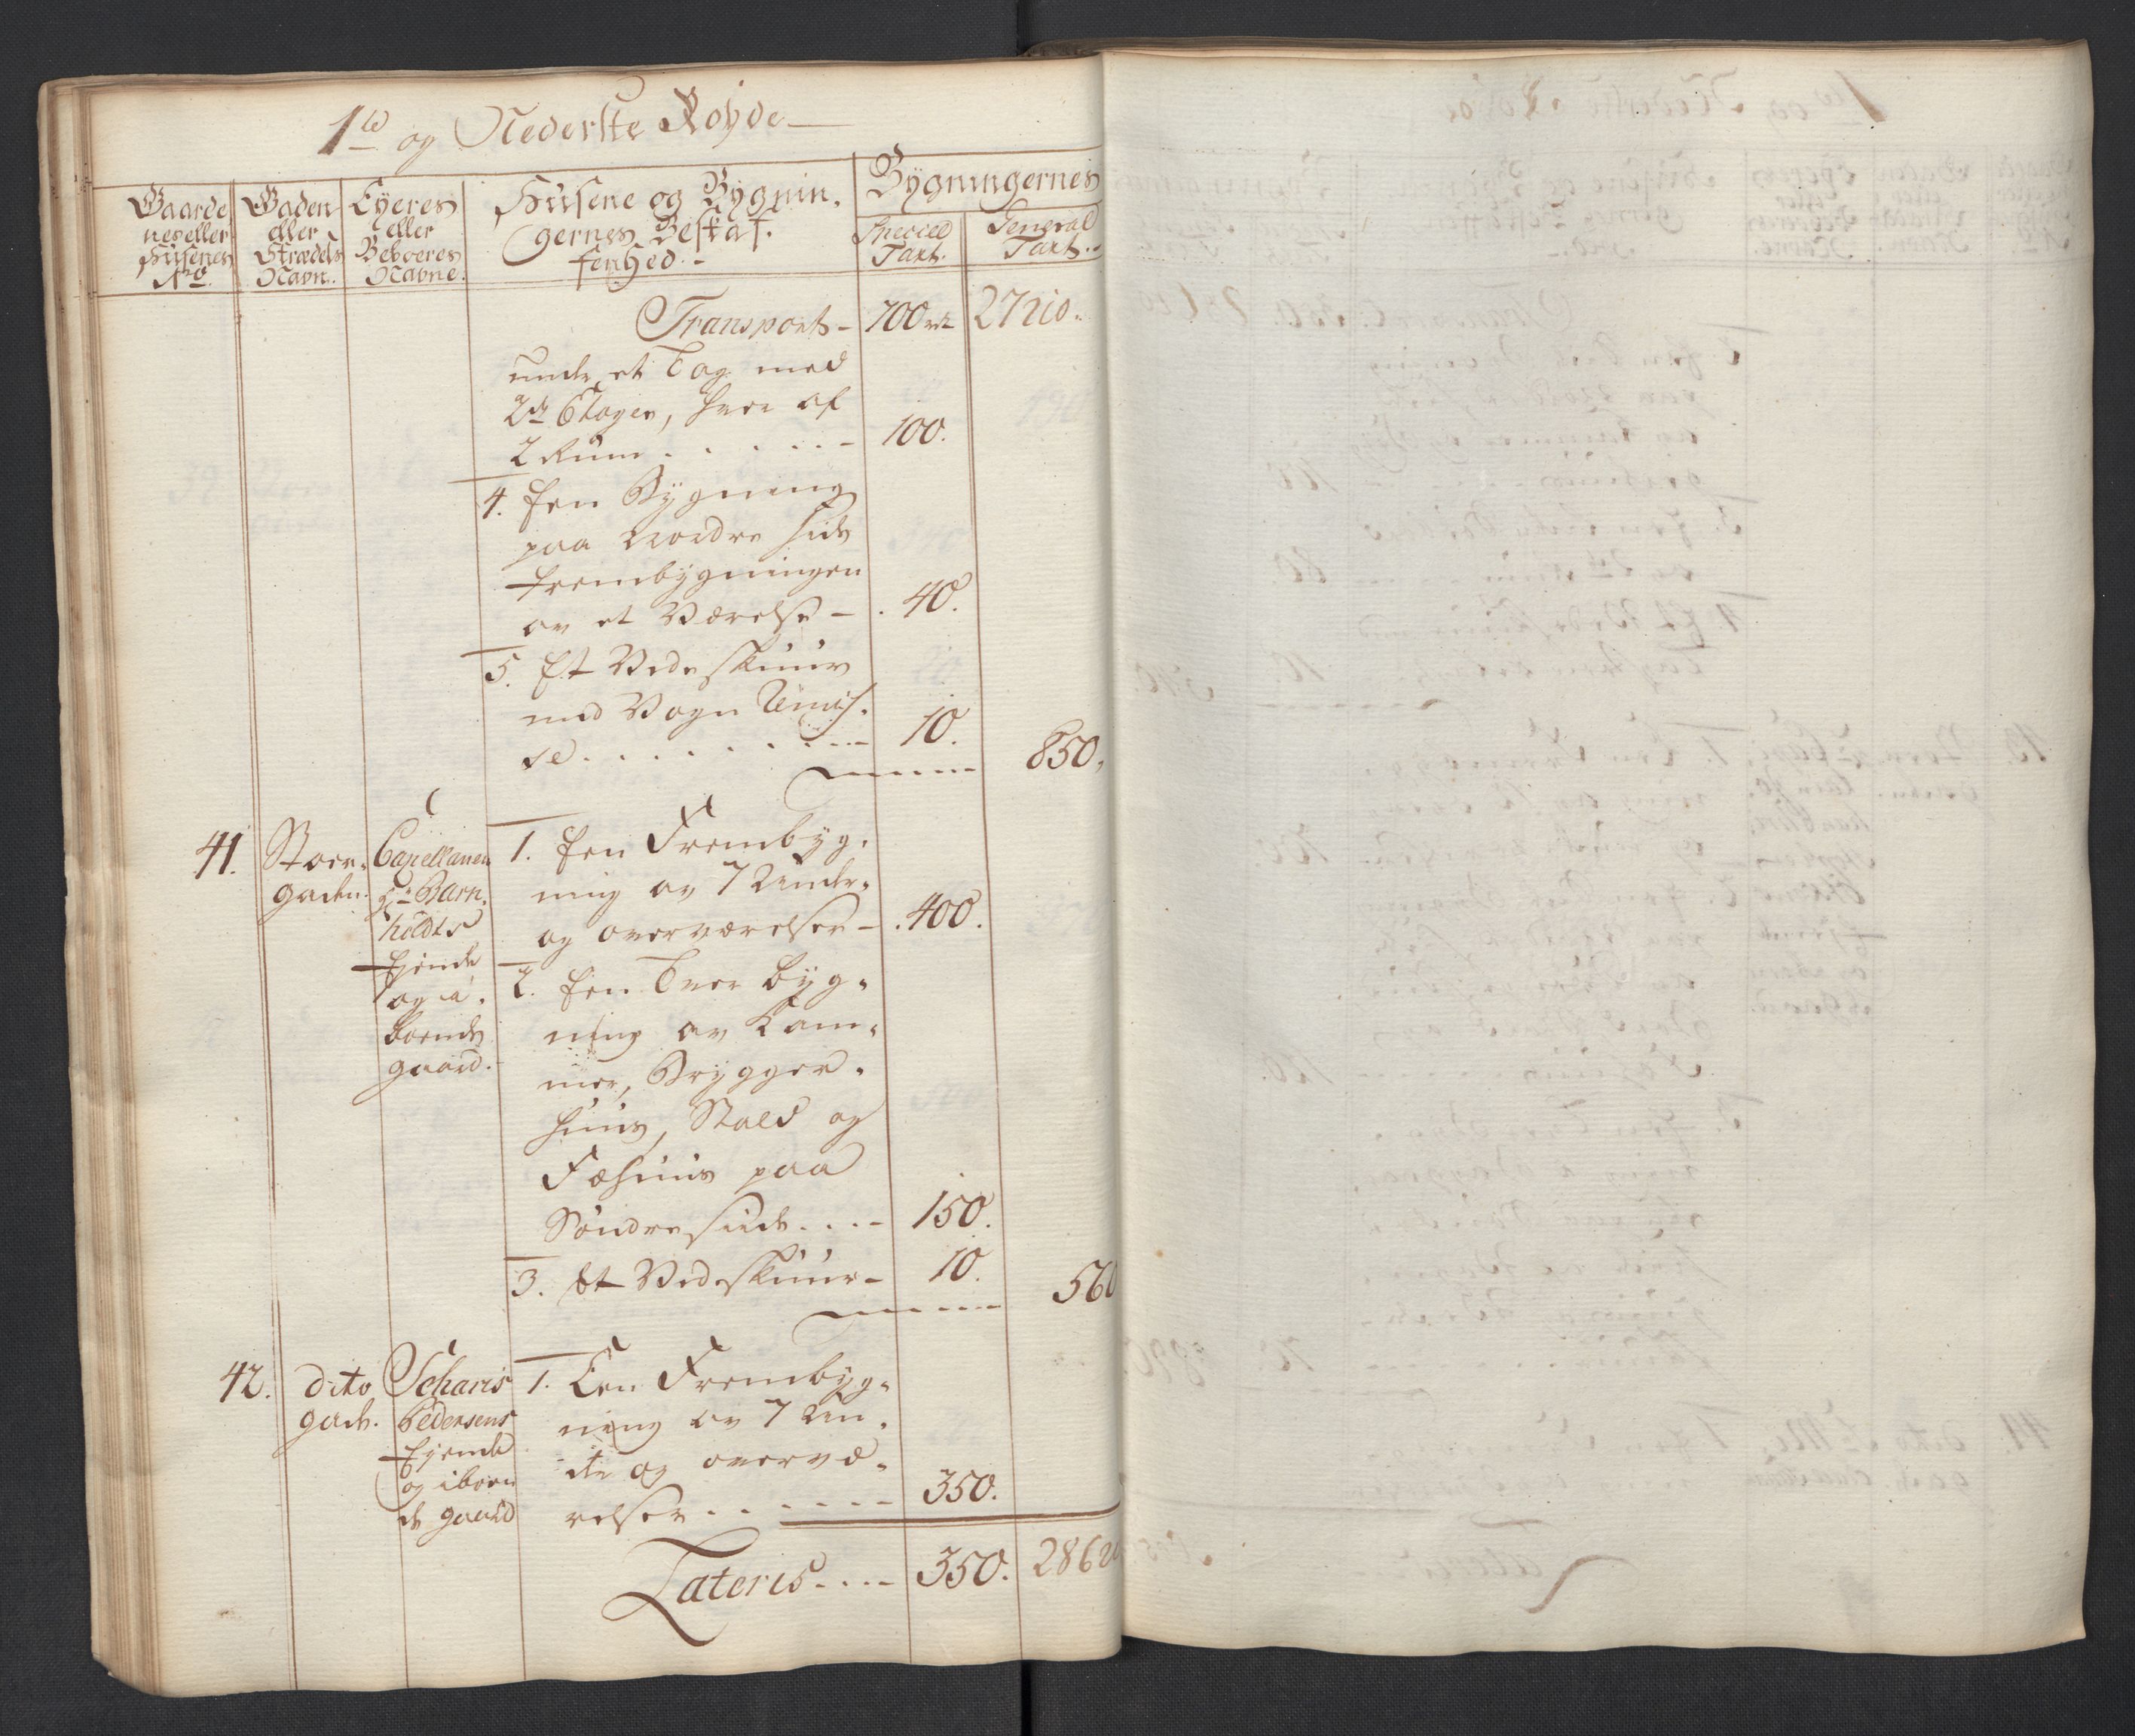 1te og Nederste Røyde
Gaarde
nes eller
Husenes
No.
Gaden
eller
Strædets
Navn.
Eyeres
eller
Beboeres
Navne.
Husene og Bygnin.
gernes Beskaf.
fenhed.
Bygningernes
Special
Taxt.
General
Taxt.
Transport - 700 rd 27210.
under et Tag med
2de Etager, hver af
2 Rum . . . . . - 100.
4. Een Bygning
paa Nordre Side
Frembygningen
av et Værelse - . 40.
5. Et Vedeskuur
med Vogn Remis.
se . . . . . . . . - 10. 850.
41. Stoer.
gaden.
Capellanen
Hr. Barn.
holdts
Ejende
og i.
boende
gaard.
1. Een Frembyg.
ning av 7 Under.
og overværelser - . 400.
2. Een Tver byg.
ning av Kam.
mer, Brygger.
huus, Stald og
Fæhuus paa
Søndre siide . . . - 150.
3. Et Vedeskuur - 10. 560
42. dito
gade.
Zcharis
Pedersens
Ejende
og iboen
de gaard
1. Een Frembyg.
ning av 7 Un.
der og overvæ.
relser . . . . . . - 350.
Lateris . . . - 350. 2862